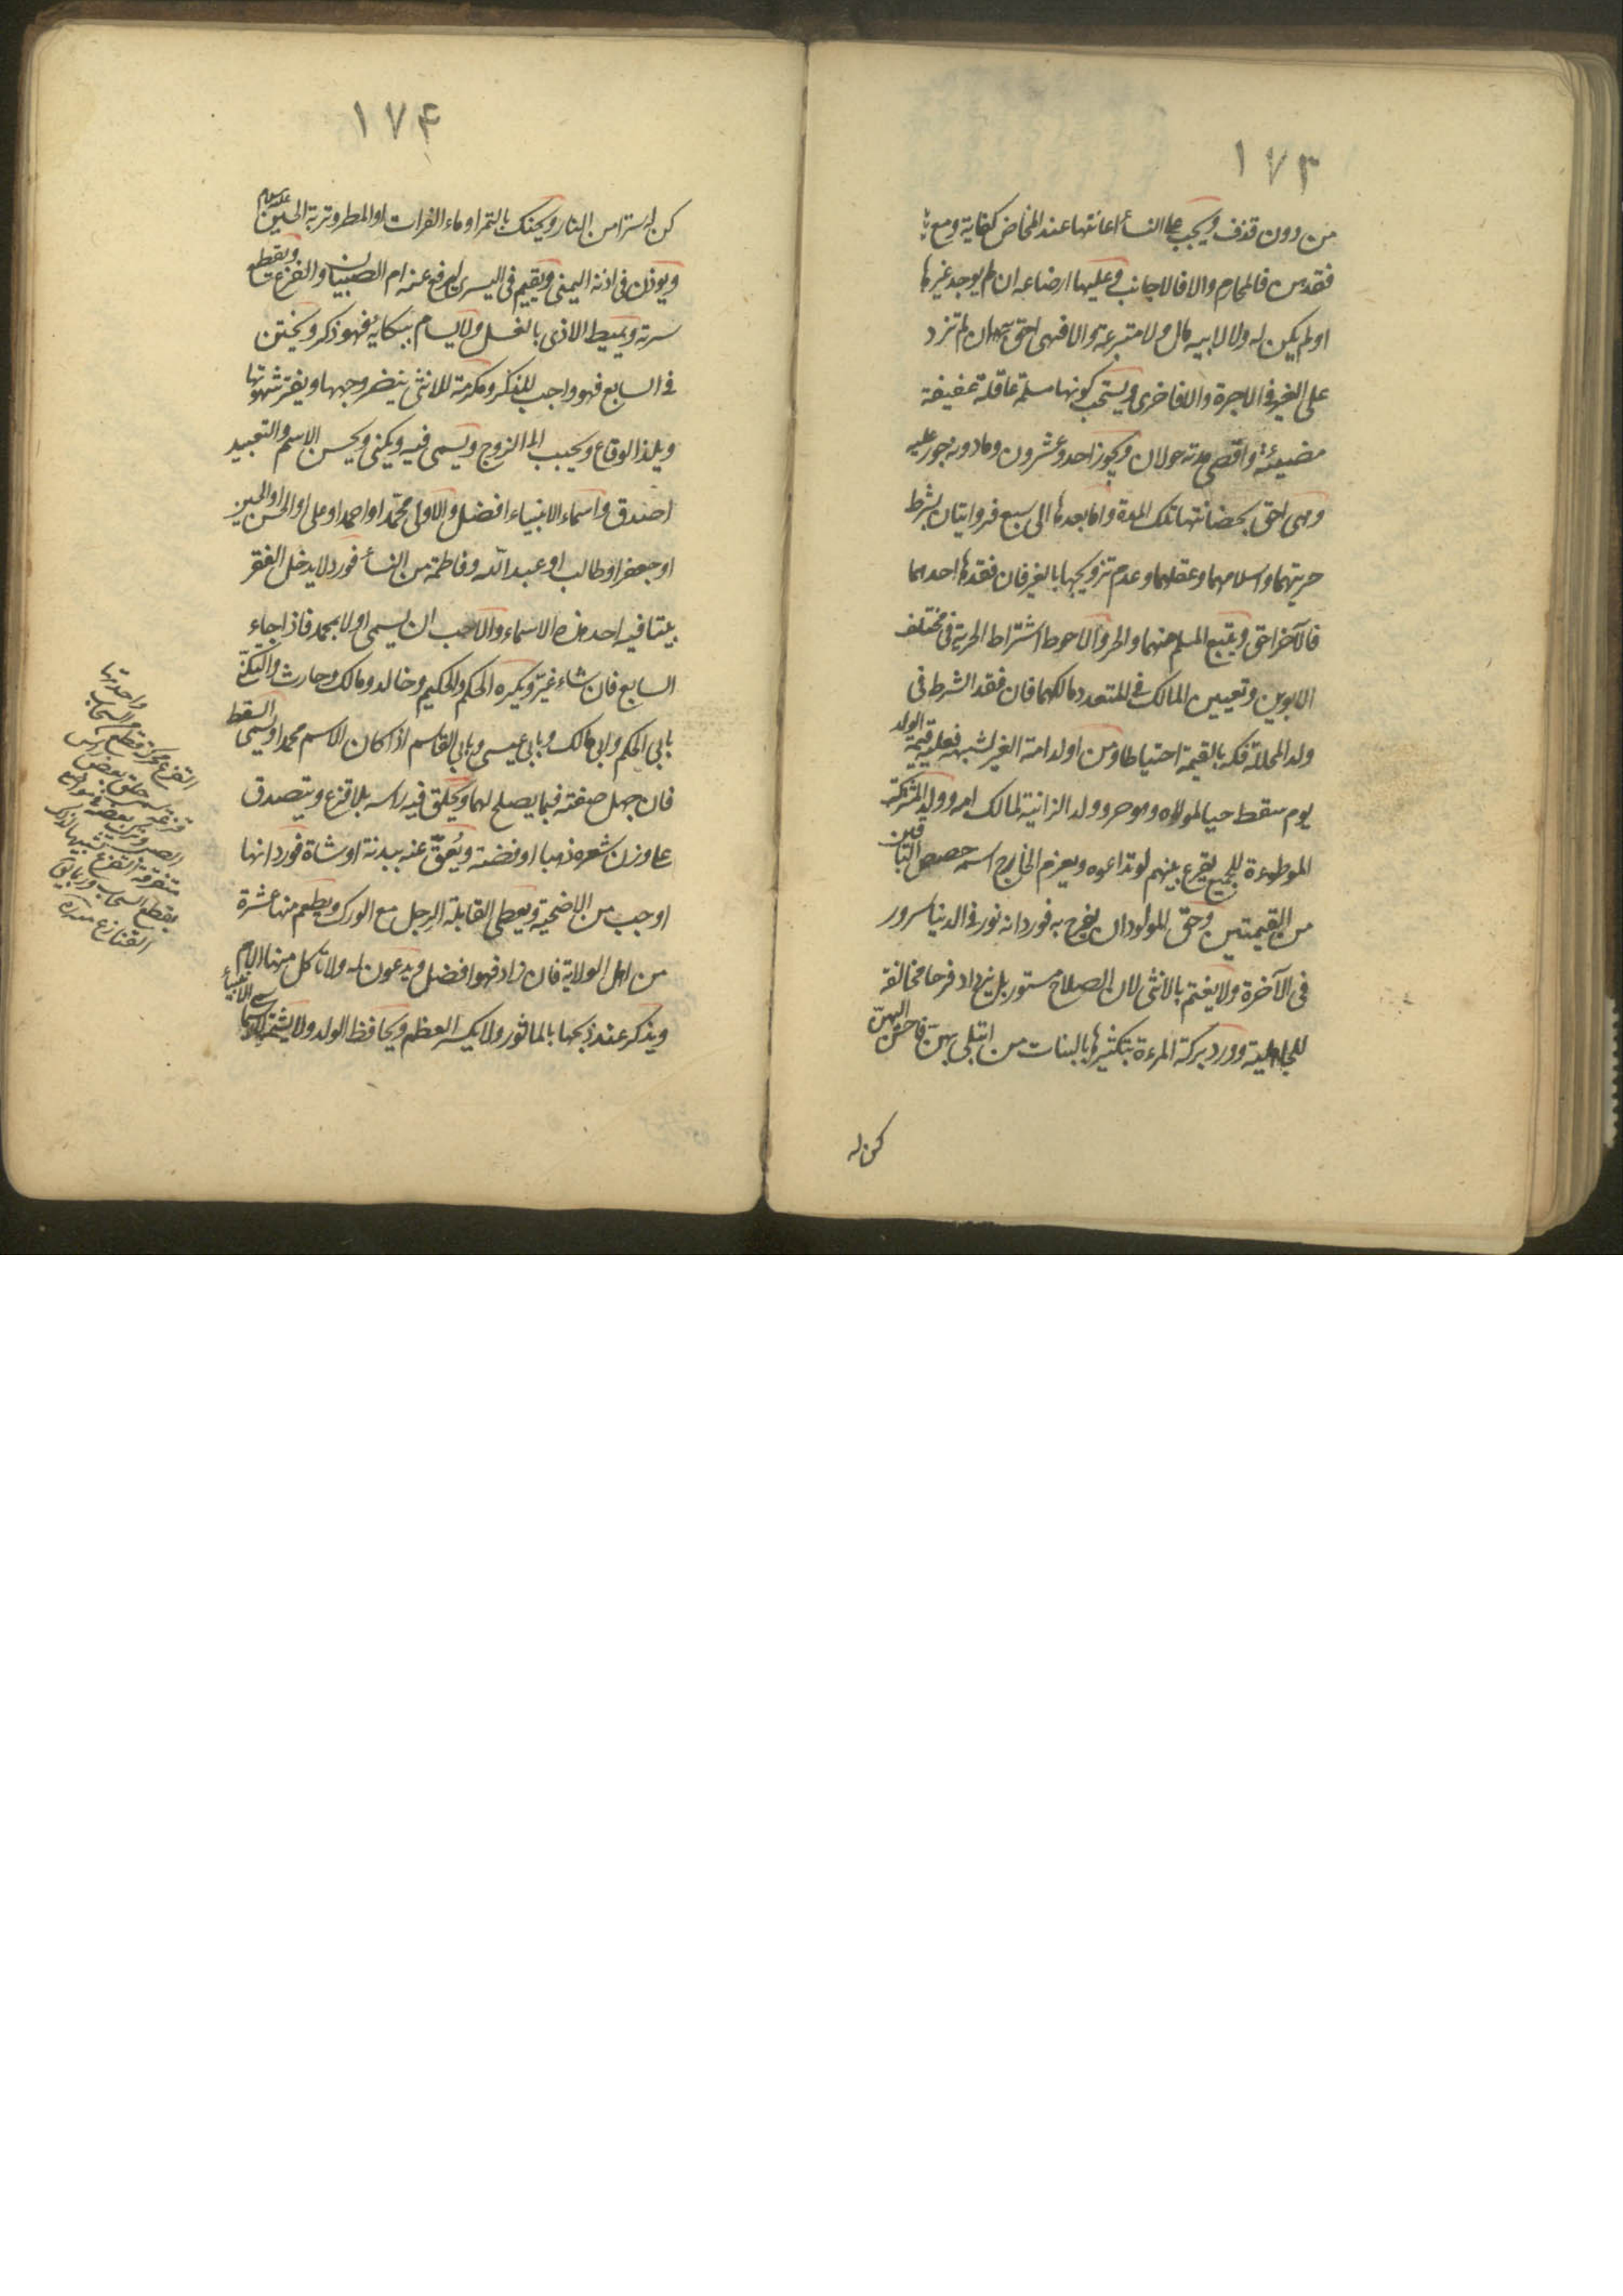 ١٧٣
من دون قذف ويجب على النسأ اعانتها عند المخاض كفاية ومع
فقدهن فالمحارم والا فالاجانب وعليها ارضاعه ان لم يوجد غيرها
او لم يكن له ولا لابيه مال ولا متبرعة والا فهى احق به ان لم تزد
على الغير فى الاجرة والا فاخرى ويستحب كونها مسلمة عاقلة عفيفة
مضيئة واقصى مدته حولان ويجوز احد وعشرون وما دونه جور عليه
وهى احق بحضانتها تلك المدة واما بعدها الى سبع فروايتان بشرط
حريتهما واسلامهما وعقلهما وعدم تزويجها بالغير فان فقدها احدهما
فالآخر احق ويتبع المسلم منهما والحر والاحوط اشتراط الحرية فى مختلف
الابوين وتعيين المالك فى المتعدد مالكهما فان فقد الشرط فى
ولد المحللة فكه بالقيمة احتياطا ومن اولد امة الغير لشبهة فعليه قيمة الولد
يوم سقط حيا لمولاه وهو حر وولد الزانية لمالك امه وولد المشتركة
الموطوءة للجميع يقرع بينهم لو تداعوه ويغرم الخارج اسمه حصص الباقين
من القيمتين وحق المولود ان يفرح به فورد انه نور فى الدنيا سرور
فى الآخرة ولا يغتم بالانثى لان الصلاح مستور بل يزداد فرحا مخالفة
للجاهلية وورد بركة المرءة بتكثيرها بالبنات من ابتلى بهن فاحسن اليهن
كن له
١٧۴
كن له سترا من النار ويحنك بالتمر او ماء الفرات او المطر وتربة الحسين عليه السلام
ويوذن فى اذنه اليمنى ويقيم فى اليسرى ليرفع عنه ام الصبيان والفزع ويقطع
سرته ويميط الاذى بالغسل ولا يسام ببكايه فهو ذكر ويختن
فى السابع فهو واجب للذكر ومكرمة للانثى ينضر وجهها ويفتر شهوتها
ويلذ الوقاع ويحبب الى الزوج ويسمى فيه ويكنى ويحسن الاسم والتعبيد
اصدق واسماء الانبياء افضل والاولى محمّد او احمد او على او الحسن او الحسين
او جعفر او طالب او عبد الله وفاطمة من النسأ فورد لا يدخل الفقر
بيتا فيه احد هذه الاسماء والاحب ان يسمى اولا بمحمد فاذا جاء
السابع فان شاء غيّر ويكره الحكم والحكيم وخالد ومالك وحارث والتكنّة
بابى الحكم وابى مالك وبابى عيسى وبابى القاسم اذا كان الاسم محمدا ويسمى السقط
فان جهل صفته فبما يصلح لهما ويحلق فيه راسه بلا قزع ويتصدق
على وزن شعره ذهبا او فضة ويُعقّ عنه ببدنة او شاة فورد انها
اوجب من الاضحية ويعطى القابلة الرجل مع الورك ويطعم منها عشرة
من اهل الولاية فان زاد فهو افضل ويدعون له ولا تاكل منها الام
ويذكر عند ذبحها بالماثور ولا يكسر العظم ويحافظ الولد ولا يشتم
القزع محركة قطع من السحاب واحدتها
قزعة حلق بعض راس
الصبى وترك بعضه مواضع
متفرقة القزع تشبيها لذلك
بقطع السحاب
القنازع